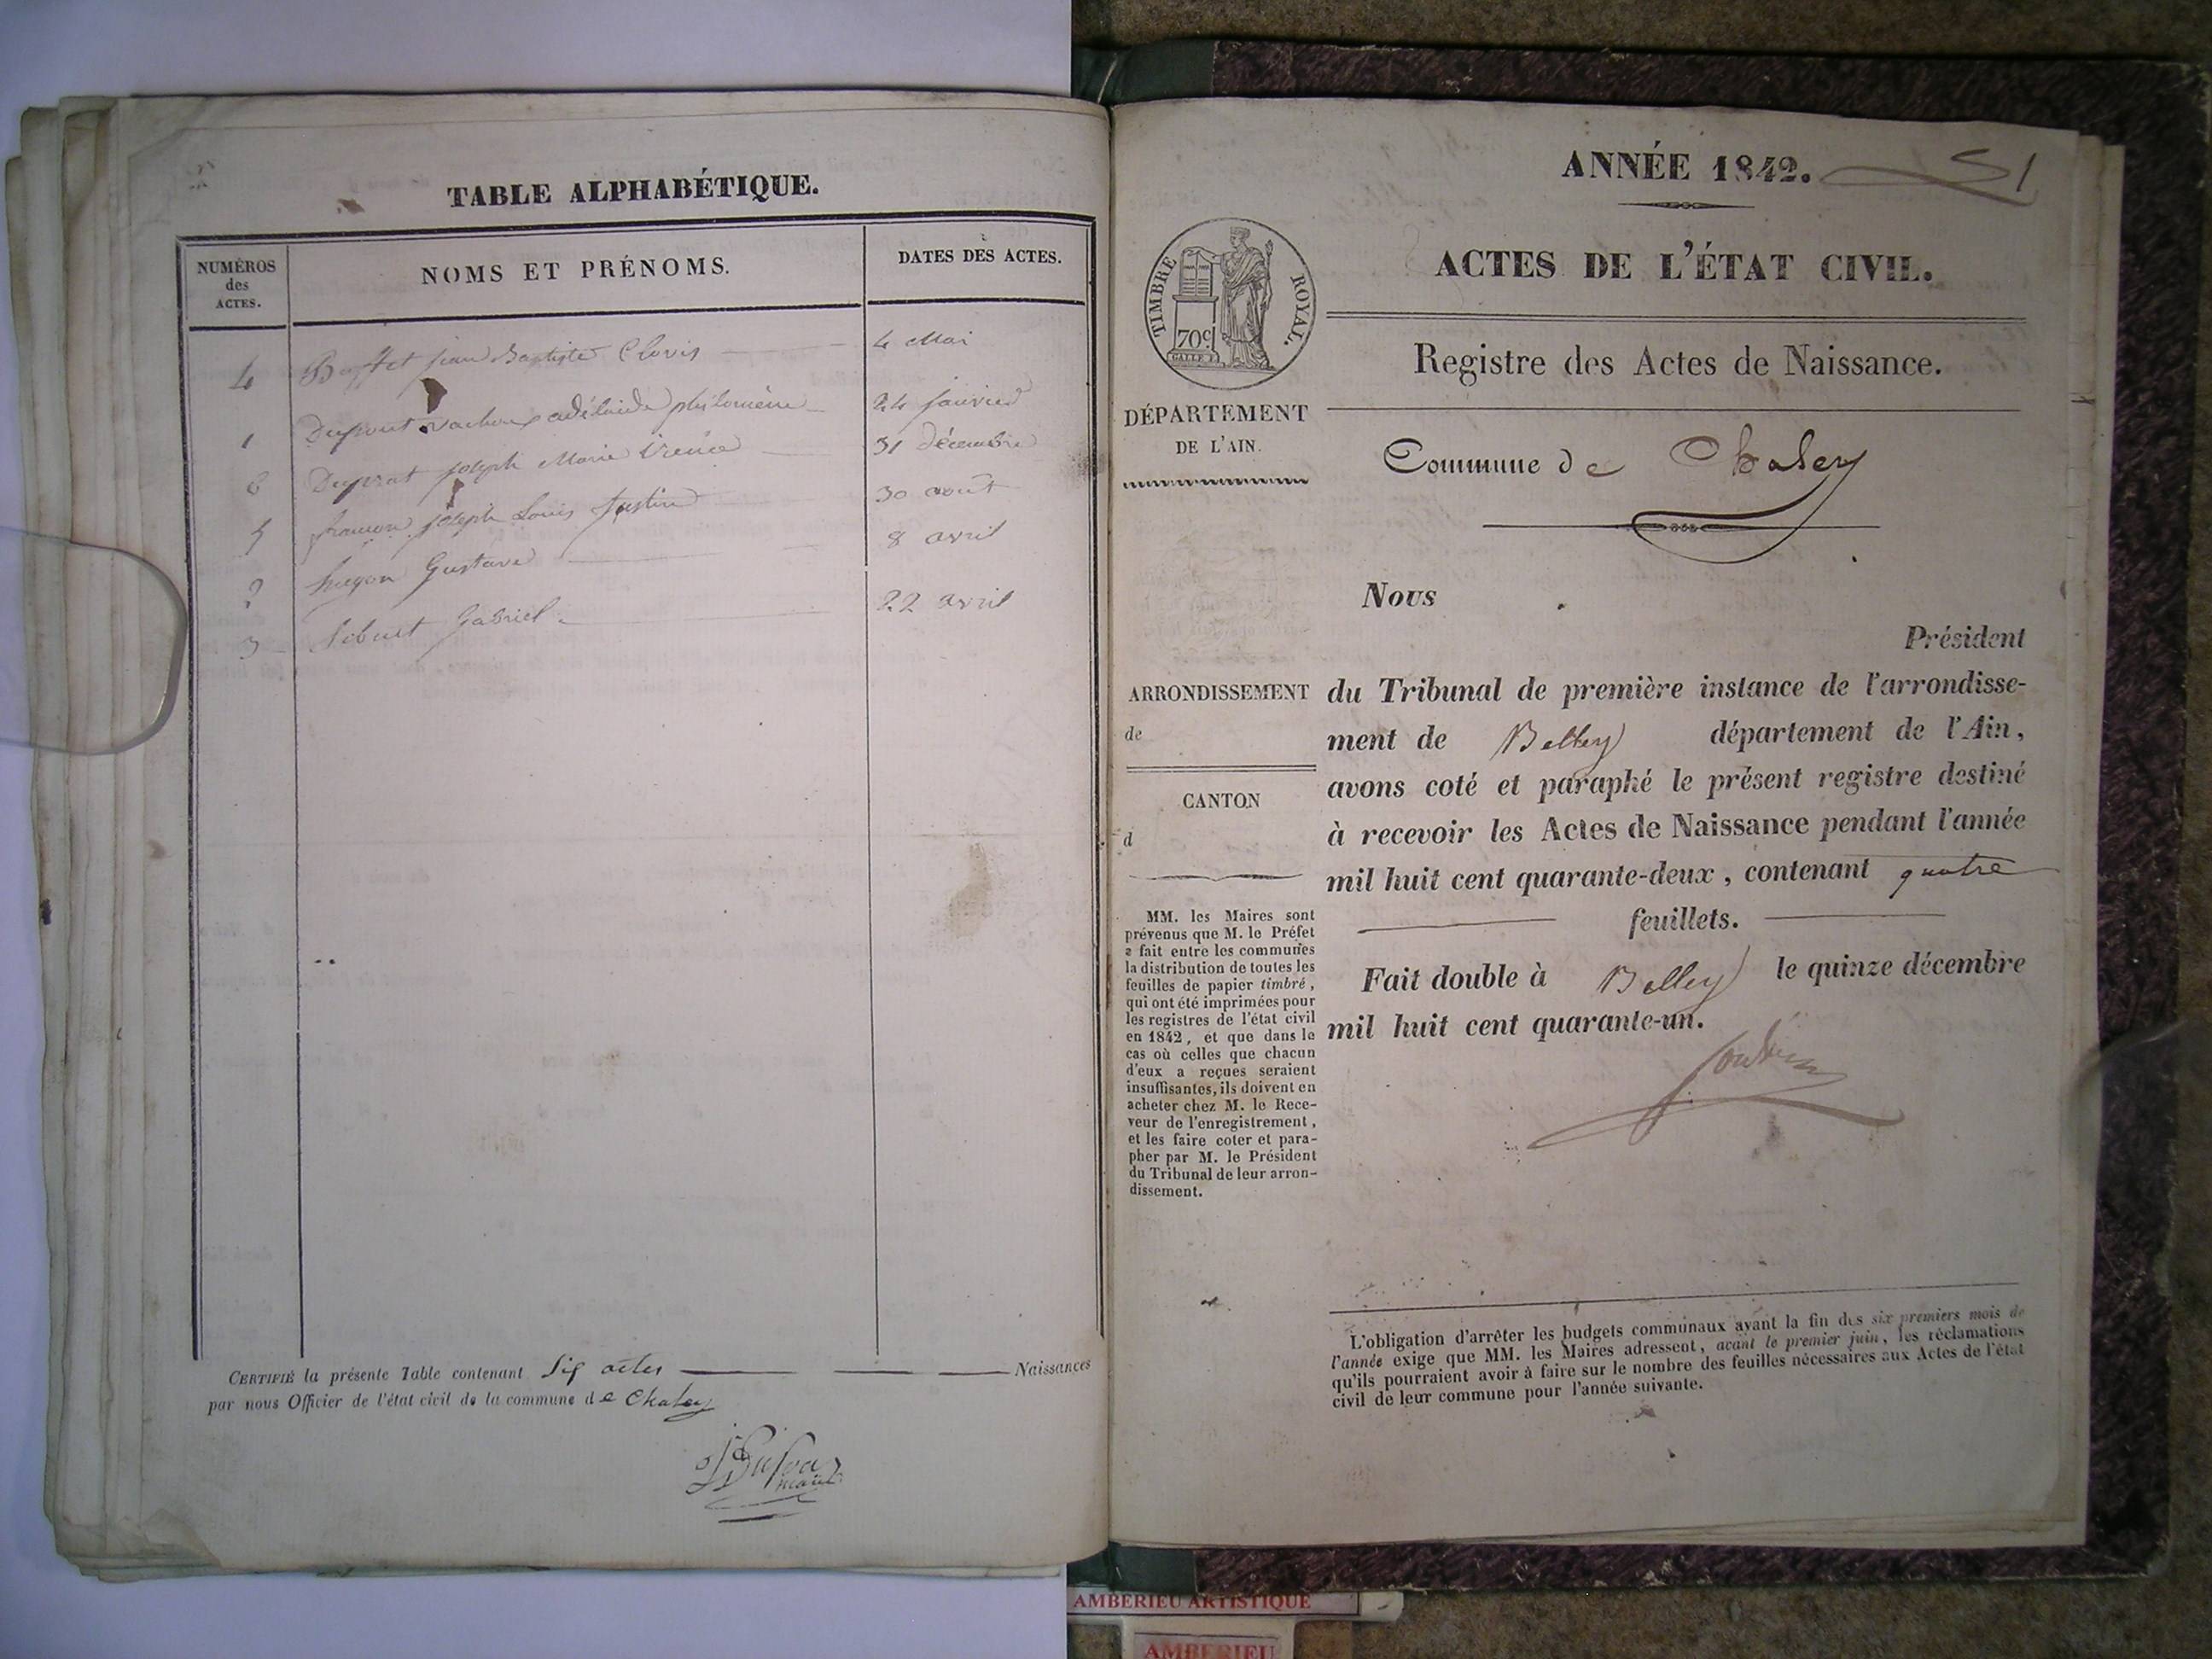 TABLE ALPHABÉTIQUE.
NUMÉROS des ACTES.
NOMS ET PRÉNOMS.
DATES DES ACTES.
4 jean Baptiste Clovis 4 Mai
1 Dupont adélaide philomène 24 janvier
6 Duprat joseph Marie 31 décembre
5 joseph Louis Justin 30 août
2 hugon Gustave 8 avril
3 Gabriel 22 avril
CERTIFIÉ la présente Table contenant Six actes Naissances
par nous Officier de l'état civil de la commune de Chaley
ANNÉE 1842. 51
ACTES DE L'ÉTAT CIVIL.
TIMBRE ROYAL.
70c
Registre des Actes de Naissance.
DÉPARTEMENT
DE L'AIN.
Commune de Chaley
Nous
Président
ARRONDISSEMENT
de
CANTON
d
du Tribunal de première instance de l'arrondisse-
ment de Belley département de l'Ain,
avons coté et paraphé le présent registre destiné
à recevoir les Actes de Naissance pendant l'année
mil huit cent quarante-deux, contenant quatre
feuillets.
Fait double à Belley le quinze décembre
mil huit cent quarante-un.
MM. les Maires sont
prévenus que M. le Préfet
a fait entre les communes
la distribution de toutes les
feuilles de papier timbré,
qui ont été imprimées pour
les registres de l'état civil
en 1842, et que dans le
cas où celles que chacun
d'eux a reçues seraient
insuffisantes, ils doivent en
acheter chez M. le Rece-
veur de l'enregistrement,
et les faire coter et para-
pher par M. le Président
du Tribunal de leur arron-
dissement.
L'obligation d'arrêter les budgets communaux avant la fin des six premiers mois de
l'année exige que MM. les Maires adressent, avant le premier juin, les réclamations
qu'ils pourraient avoir à faire sur le nombre des feuilles nécessaires aux Actes de l'état
civil de leur commune pour l'année suivante.
AMBERIEU ARTISTIQUE
AMBERIEU